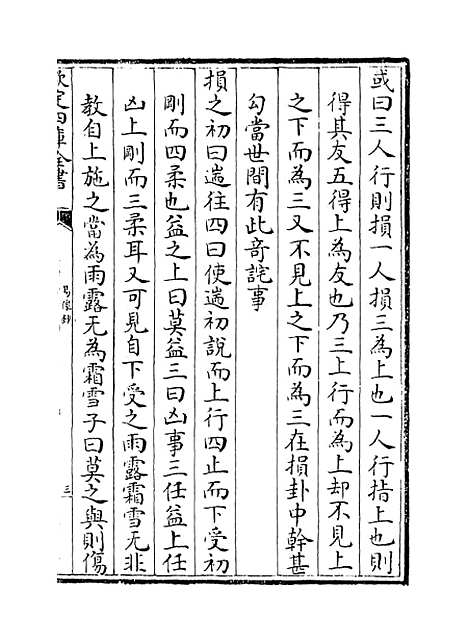 或曰三人行則損一人損三為上也一人行指上也則
得其友五得上為友也乃三上行而為上却不見上
之下而為三又不見上之下而為三在損卦中幹甚
勾當世間有此竒詫事
損之初曰遄往四曰使遄初說而上行四止而下受初
剛而四柔也益之上曰莫益三曰凶事三任益上任
凶上剛而三柔耳又可見自下受之雨露霜雪无非
教自上施之當為雨露无為霜雪子曰莫之與則傷
欽定四庫全書
易像鈔
三